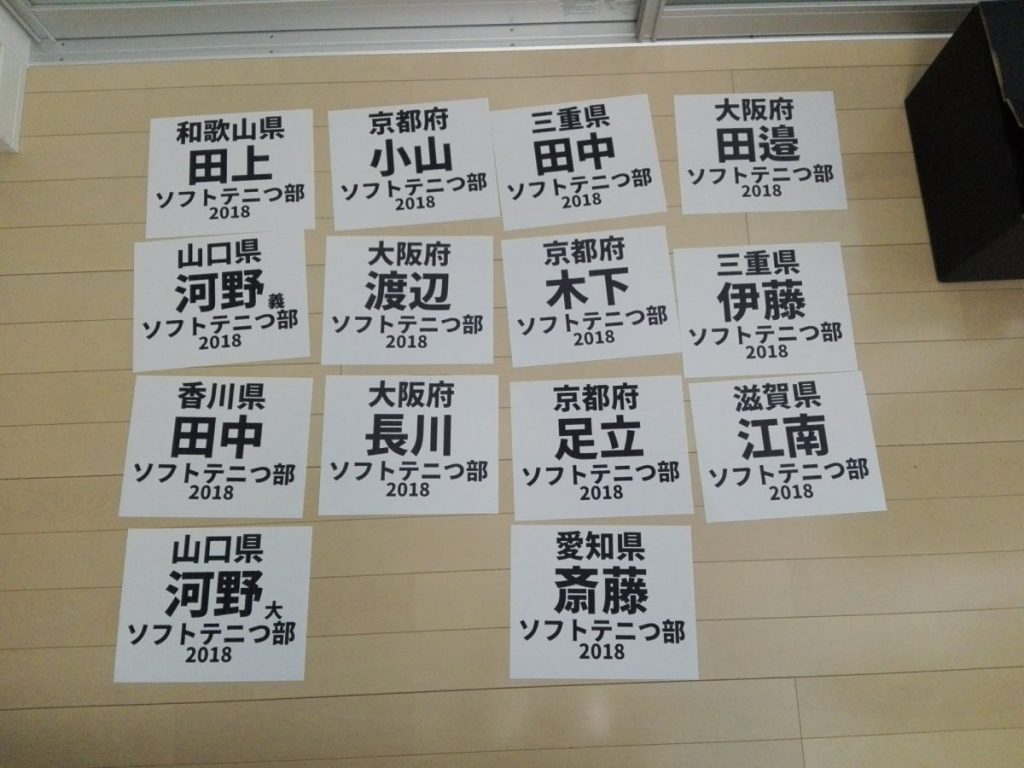 和歌山県
田上
ソフトテニつ部
2018
京都府
小山
ソフトテニつ部
2018
三重県
田中
ソフトテニつ部
2018
大阪府
田邉
ソフトテニつ部
2018
山口県
河野 義
ソフトテニつ部
2018
大阪府
渡辺
ソフトテニつ部
2018
京都府
木下
ソフトテニつ部
2018
三重県
伊藤
ソフトテニつ部
2018
香川県
田中
ソフトテニつ部
2018
大阪府
長川
ソフトテニつ部
2018
京都府
足立
ソフトテニつ部
2018
滋賀県
江南
ソフトテニつ部
2018
山口県
河野 大
ソフトテニつ部
2018
愛知県
斎藤
ソフトテニつ部
2018